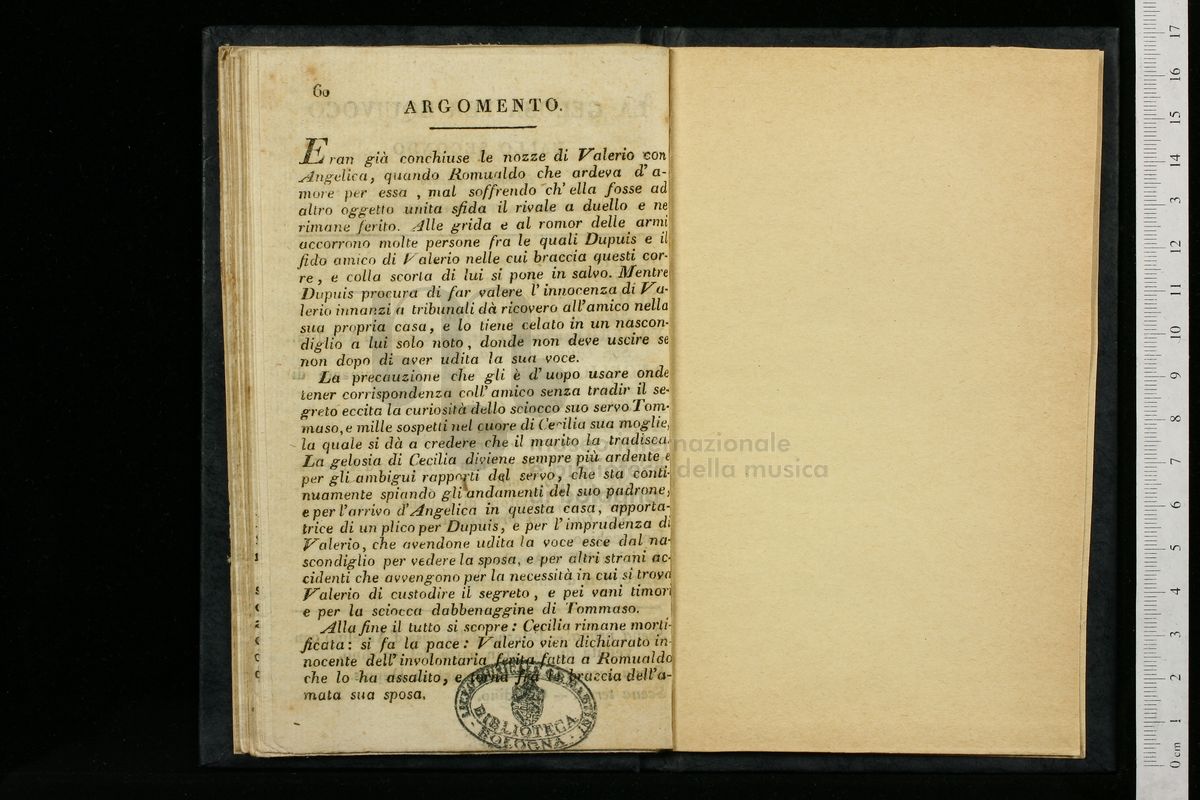 60
ARGOMENTO.
Eran già conchiuse le nozze di Valerio con
Angelica, quando Romualdo che ardeva d'a-
more per essa, mal soffrendo ch'ella fosse ad
altro oggetto unita sfida il rivale a duello e ne
rimane ferito. Alle grida e al romor delle armi
accorrono molte persone fra le quali Dupuis e il
fido amico di Valerio nelle cui braccia questi cor-
re, e colla scorta di lui si pone in salvo. Mentre
Dupuis procura di far valere l'innocenza di Va-
lerio innanzi a tribunali dà ricovero all'amico nella
sua propria casa, e lo tiene celato in un nascon-
diglio a lui solo noto, donde non deve uscire se
non dopo di aver udita la sua voce.
La precauzione che gli è d'uopo usare onde
tener corrispondenza coll'amico senza tradir il se-
greto eccita la curiosità dello sciocco suo servo Tom-
maso, e mille sospetti nel cuore di Cecilia sua moglie,
la quale si dà a credere che il marito la tradisca.
La gelosia di Cecilia diviene sempre più ardente e
per gli ambigui rapporti del servo, che sta conti-
nuamente spiando gli andamenti del suo padrone,
e per l'arrivo d'Angelica in questa casa, apporta-
trice di un plico per Dupuis, e per l'imprudenza di
Valerio, che avendone udita la voce esce dal na-
scondiglio per vedere la sposa, e per altri strani ac-
cidenti che avvengono per la necessità in cui si trova
Valerio di custodire il segreto, e pei vani timori
e per la sciocca dabbenaggine di Tommaso.
Alla fine il tutto si scopre: Cecilia rimane morti-
ficata: si fa la pace: Valerio vien dichiarato in-
nocente dell'involontaria ferita fatta a Romualdo
che lo ha assalito, e torna fra le braccia dell'a-
mata sua sposa.
BIBLIOTECA
BOLOGNA
museo internazionale
e biblioteca della musica
di bologna
0 cm 1 2 3 4 5 6 7 8 9 10 11 12 3 14 15 16 17